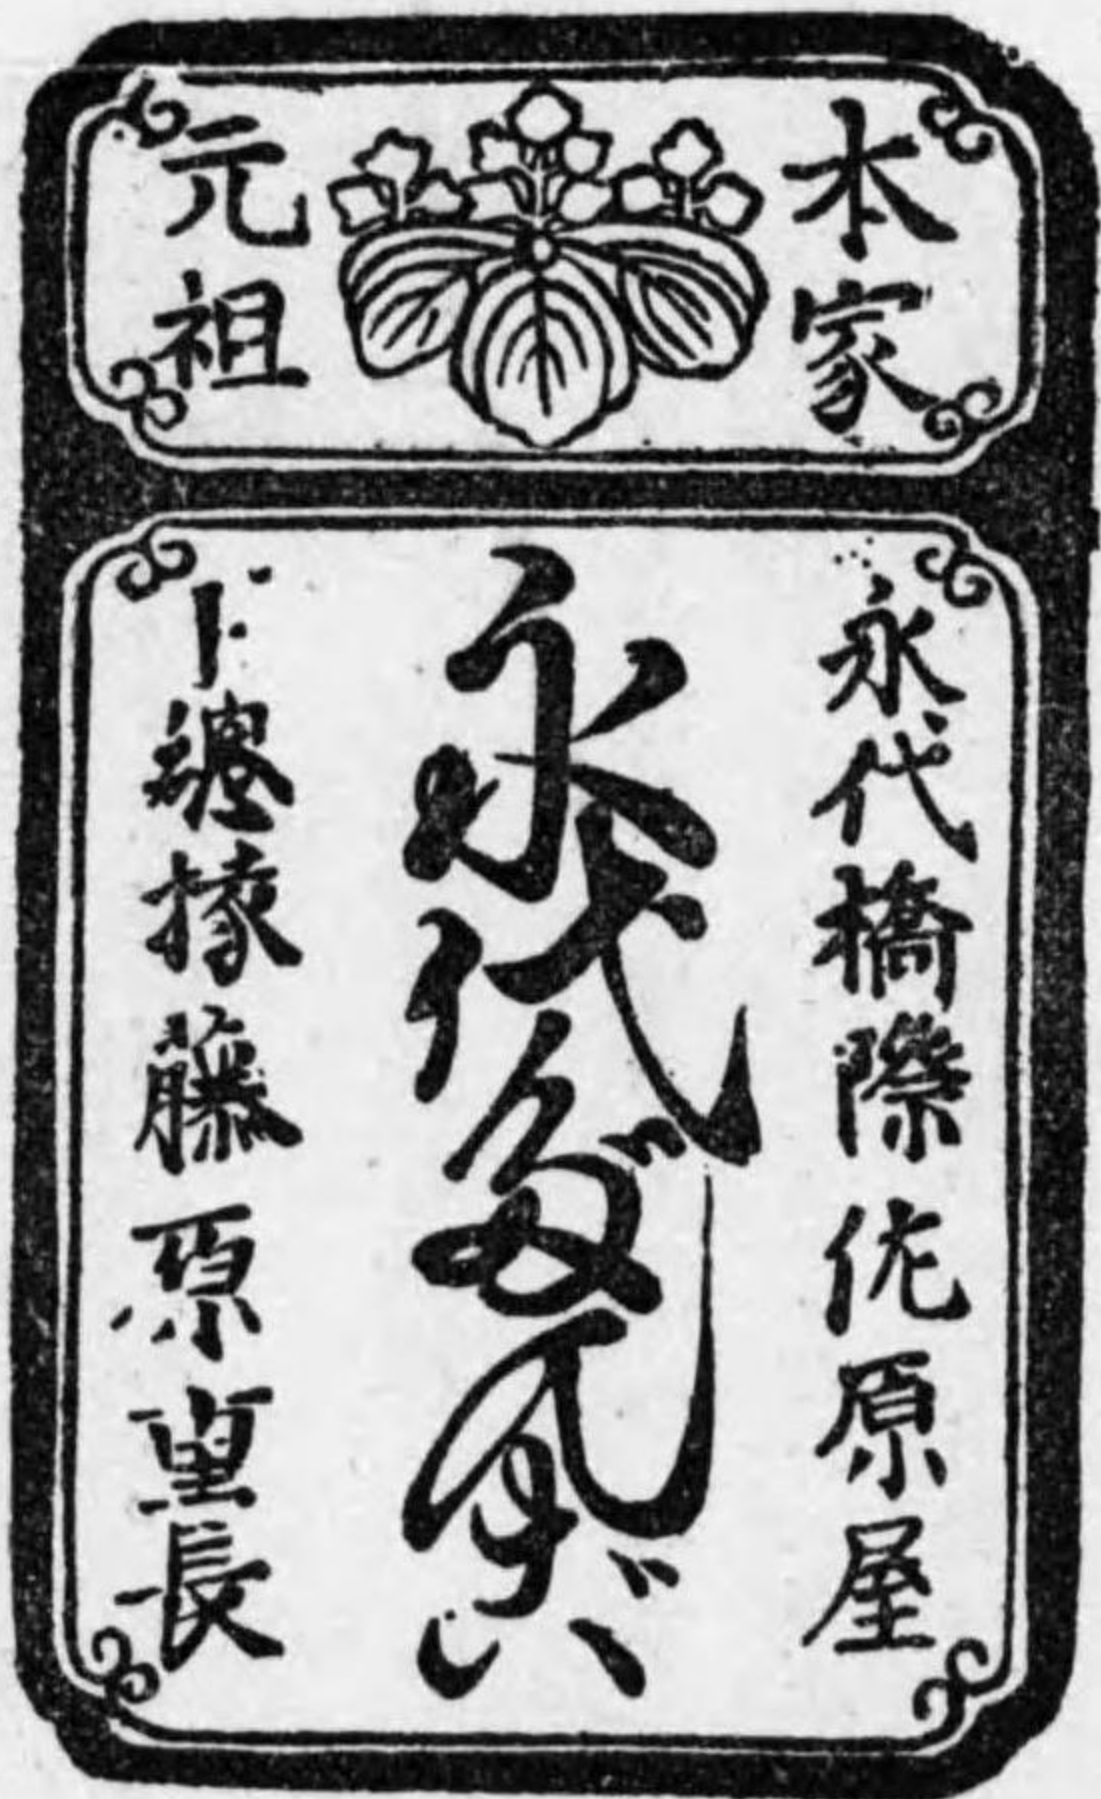 本家
元祖
永代橋際佐原屋
永代だんご
下總掾藤原重長